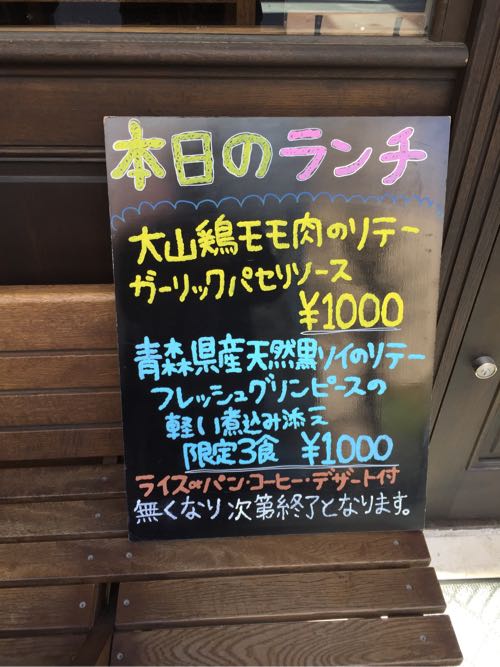 本日のランチ
大山鶏モモ肉のソテー
ガーリックパセリソース
¥1000
青森県産天然黒ソイのソテー
フレッシュグリンピースの
軽い煮込み添え
限定3食 ¥1000
ライスorパン・コーヒー・デザート付
無くなり次第終了となります。